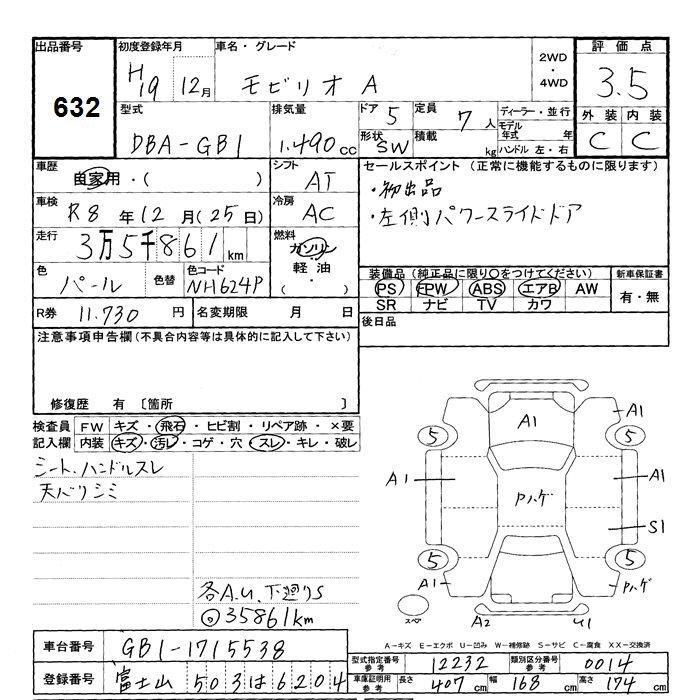 出品番号 初度登録年月 車名・グレード 2WD・4WD 評価点
632 H19 12月 モビリオ A 3.5
型式 排気量 ドア 5 定員 7人 ディーラー・並行 外装 内装
DBA-GB1 1.490cc 形状 SW 積載 kg モデル年式 年 ハンドル 左・右 C C
車歴 自家用・( ) シフト AT セールスポイント (正常に機能するものに限ります)
車検 R8年12月(25日) 冷房 AC ・初出品
走行 3万5千861km 燃料 ガソリン・軽油・( ) ・左側パワースライドドア
色 パール 色替 色コード NH624P
装備品 (純正品に限り○をつけてください) 新車保証書
PS PW ABS エアB AW 有・無
SR ナビ TV カワ
R券 11.730円 名変期限 月 日 後日品
注意事項申告欄 (不具合内容等は具体的に記入して下さい)
修復歴 有 〔箇所 〕
検査員 FW キズ・飛石・ヒビ割・リペア跡・×要
記入欄 内装 キズ・汚レ・コゲ・穴・スレ・キレ・破レ
シート、ハンドルスレ
天バリシミ
各A.U.下廻りS
◎35861km
A1 A1
5 5
A1 Pハゲ A1
S1
5 5
A1 Pハゲ
スペア A2 U1
A-キズ E-エクボ U-凹み W-補修跡 S-サビ C-腐食 XX-交換済
車台番号 GB1-1715538
型式指定番号 参考 12232 類別区分番号 参考 0014
登録番号 富士山 503 は 6204
車庫証明用 参考 長さ 407cm 幅 168cm 高さ 174cm